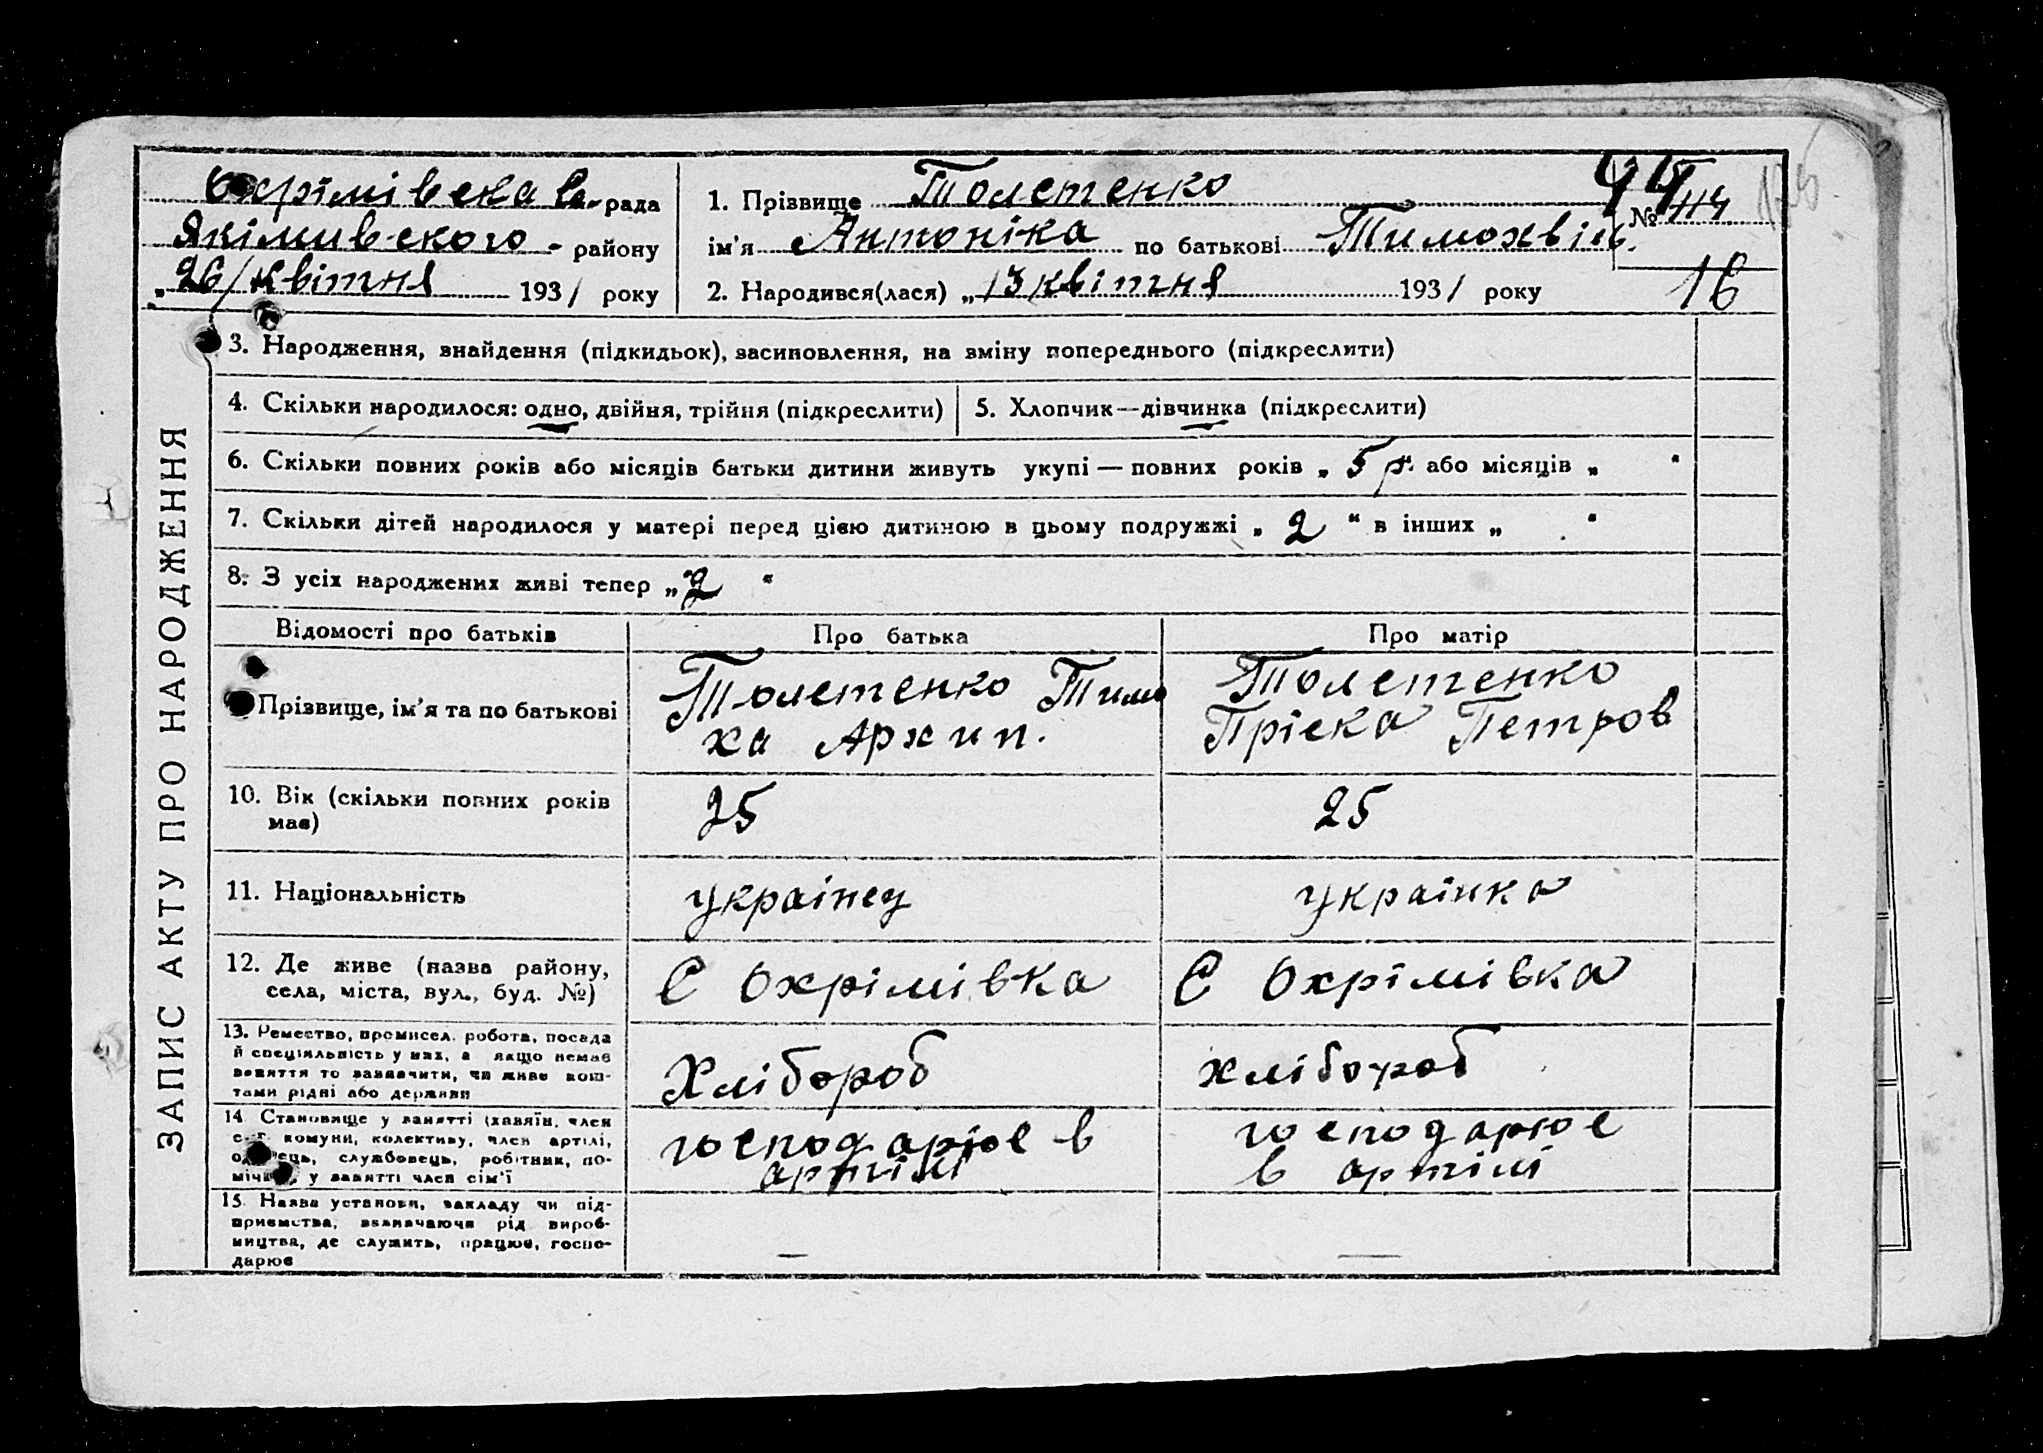 Охрімівська С.-рада
Якімивського - району
„26/квітня 1931 року
1. Прізвище Толстенко
ім'я Антоніка по батькові Тимохвіїв.
2. Народився(лася) „13 квітня 1931 року
№ 114
16
ЗАПИС АКТУ ПРО НАРОДЖЕННЯ
3. Народження, знайдення (підкидьок), засиновлення, на зміну попереднього (підкреслити)
4. Скільки народилося: одно, двійня, трійня (підкреслити)
5. Хлопчик—дівчинка (підкреслити)
6. Скільки повних років або місяців батьки дитини живуть укупі — повних років „ 5 р. або місяців „ "
7. Скільки дітей народилося у матері перед цією дитиною в цьому подружжі „ 2 " в інших „ "
8. З усіх народжених живі тепер „ 2 "
Відомості про батьків Про батька Про матір
Прізвище, ім'я та по батькові
Толстенко Тимо
ха Архип.
Толстенко
Пріська Петров
10. Вік (скільки повних років
має)
25
25
11. Національність
українец
українка
12. Де живе (назва району,
села, міста, вул., буд. №)
С Охрімівка
С Охрімівка
13. Ремество, промисел, робота, посада
й спеціяльність у них, а якщо немає
заняття то зазначити, чи живе кош-
тами рідні або держави
Хлібороб
хлібороб
14 Становище у занятті (хазяїн, член
с.-г. комуни, колективу, член артілі,
службовець, робітник, по-
у занятті член сім'ї
господарює в
артілі
господарює
в артілі
15. Назва установи, закладу чи під-
приємства, зазначаючи рід вироб-
ництва, де служить, працює, госпо-
дарює
—
—